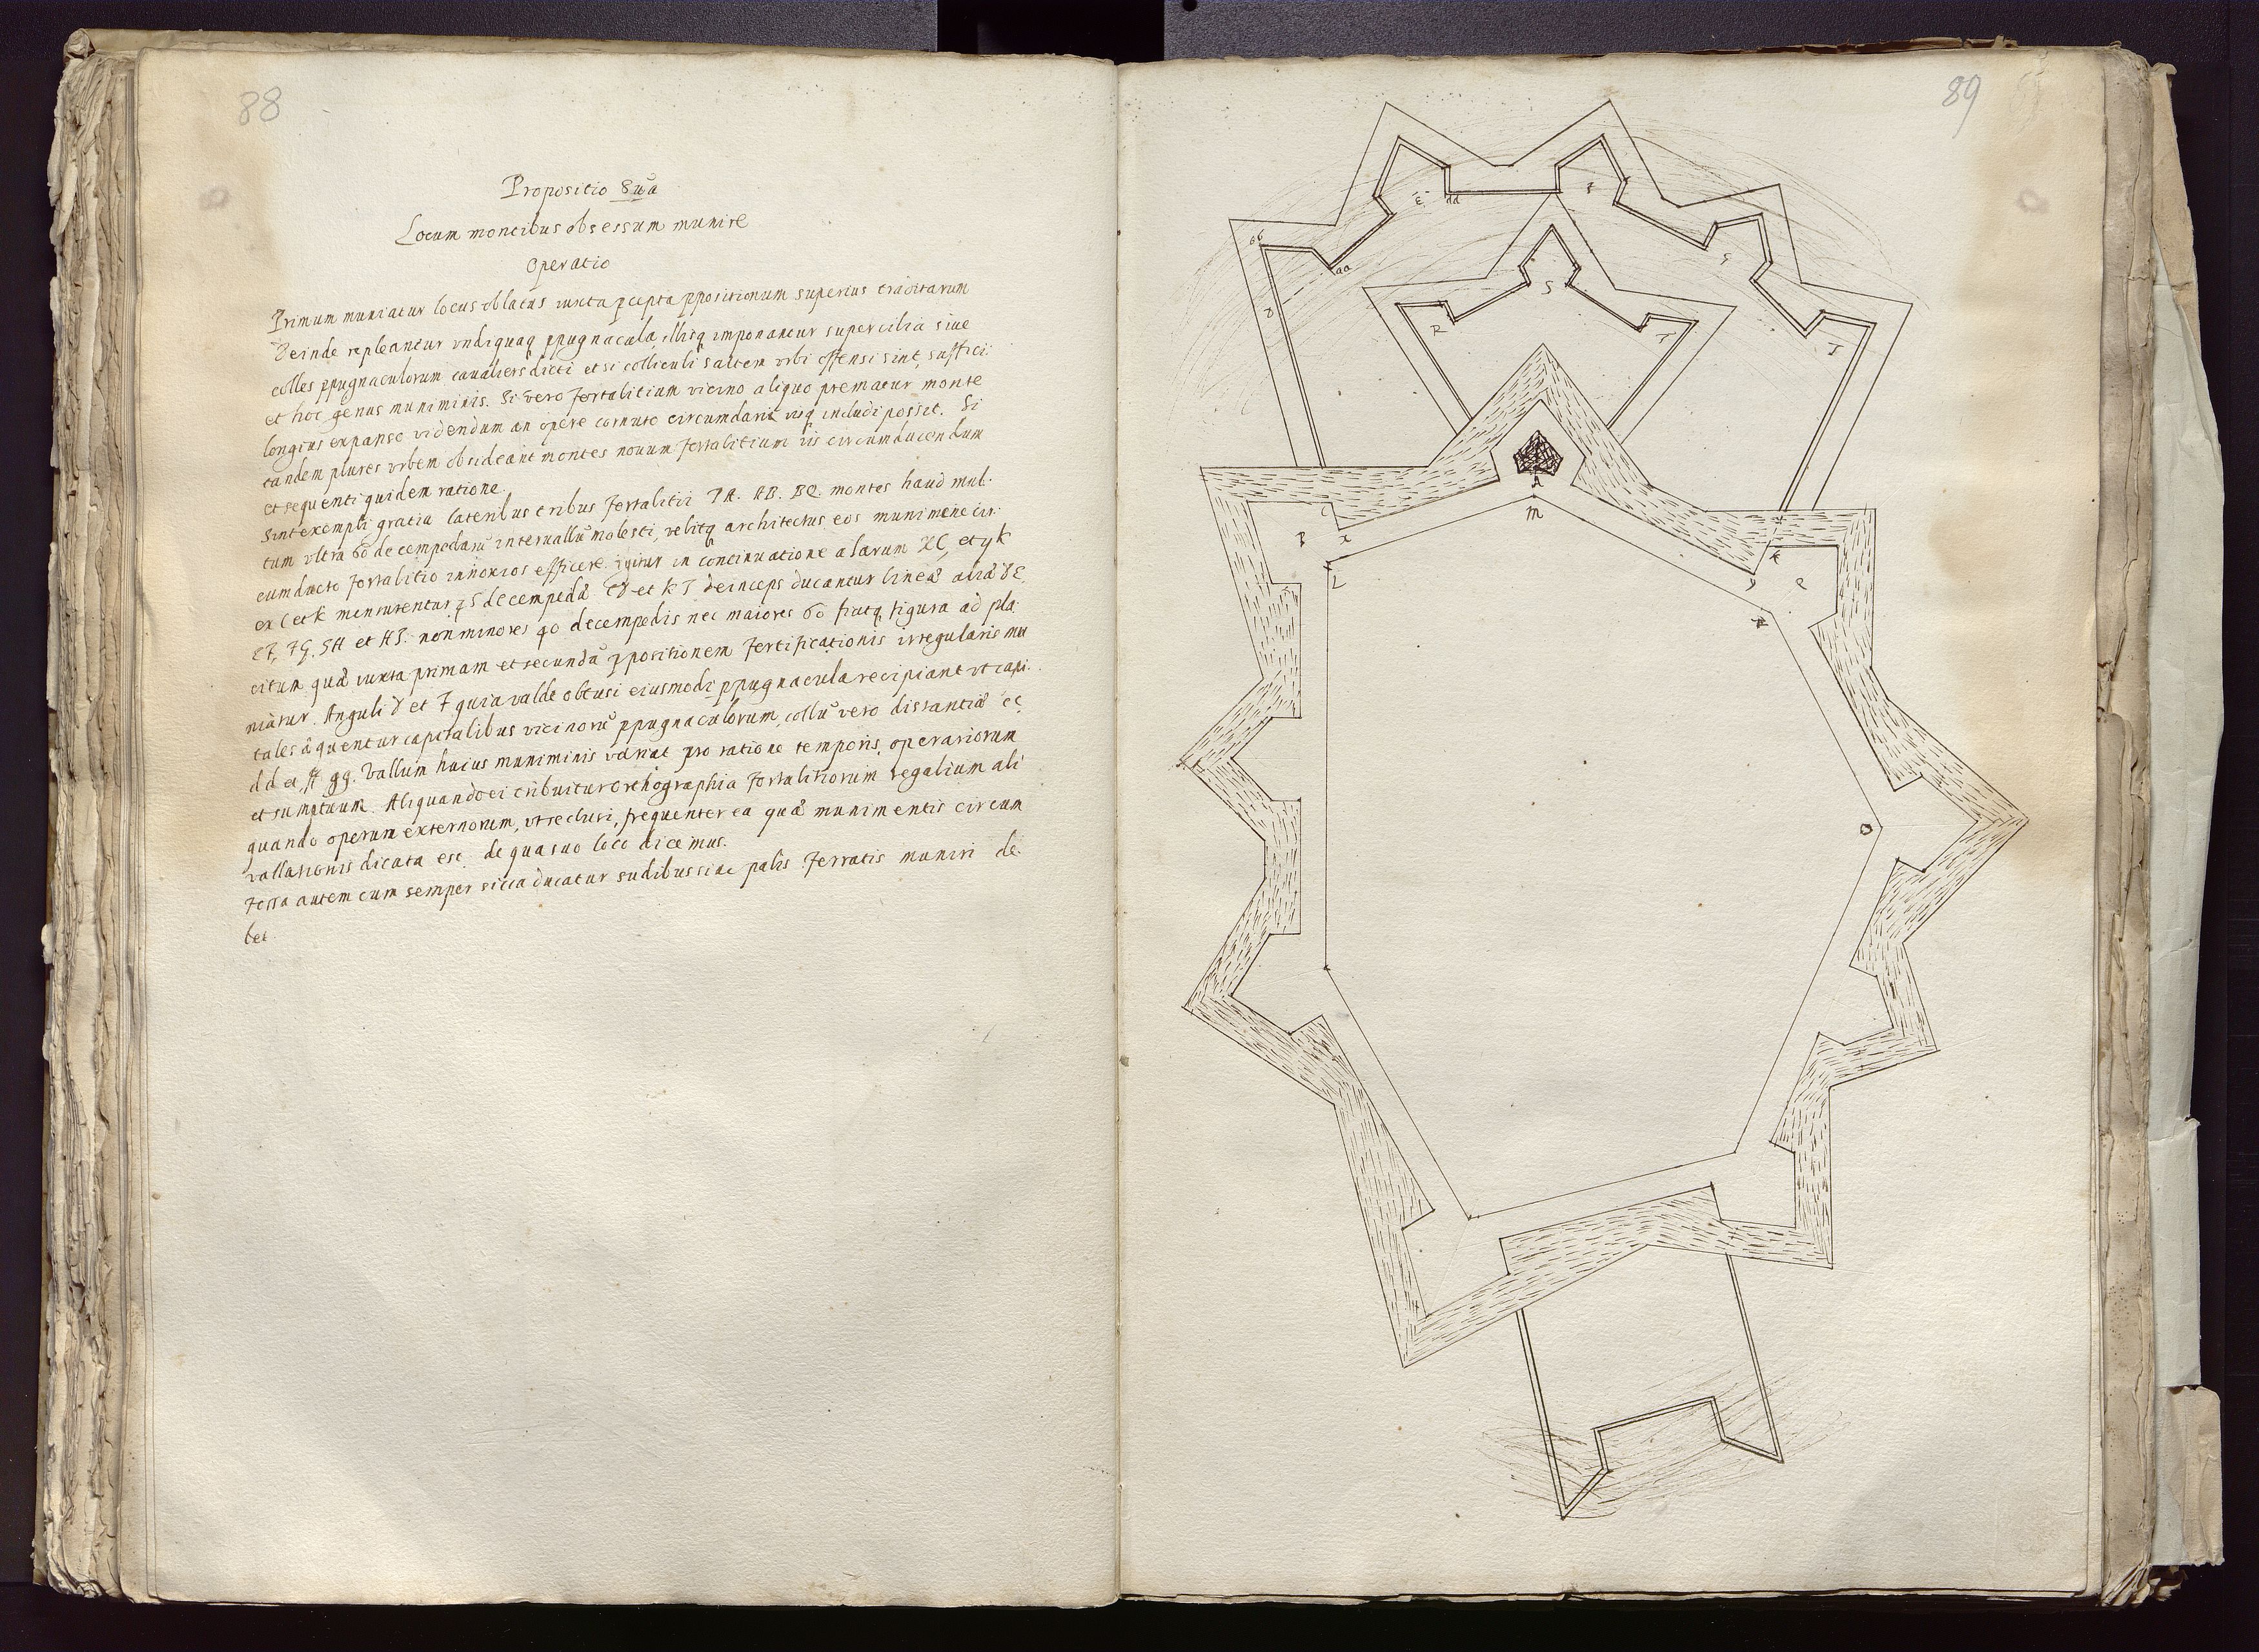 88
Propositio 8ua
Locum montibus obsessum munire
Operatio
Primum muniatur locus oblatus iuxta pcepta ppositionum superius traditarum
Deinde repleantur undiquaq ppugnacula, illisq imponantur supercilia siue
colles ppugnaculorum cavaliers dicti et si colliculi saltem urbi offensi sint, suffici:
et hoc genus muniminis. Si vero fortalitium vicino aliquo prematur monte
longius expanso videndum an opere cornuto circumdari includi possit. Si
tandem plures urbem obsideant montes novum fortalitium iis circumducendum
et sequenti quidem ratione.
Sint exempli gratia lateribus tribus fortalitii AB. montes haud mul:
tum ultra 60 decempedaru intervallu molesti, velitq architectus eos munimene cir:
cumducto fortalitio innoxios efficere. igitur in continuatione alarum XC, et yk
ex C et k mensurentur decempeda et deinceps ducantur linea
et non minores 40 decempedis nec maiores 60 fiatq figura ad pla:
citum qua iuxta primam et secunda ppositionem fortificationis irregularis mu
niatur. Anguli et quia valde obtusi eiusmodi ppugnacula recipiant ut capi:
tales aquentur capitalibus vicinoru ppugnaculorum, collu vero distantia cc,
dd et ff gg. Vallum huius muniminis variat pro ratione temporis, operariorum
et sumptuum. Aliquando ei tribuitur orthographia fortalitiorum regalium ali
quando operum externorum, ut reclusi, frequenter ea qua munimentis circum
vallationis dicata est. de qua suo loco dicemus.
fossa autem cum semper sicca ducatur sudibus siue palis ferratis muniri de:
bet.
89
E
dd
F
bb
aa
G
D
S
R
T
I
A
M
C
B
X
L
K
Q
y
O